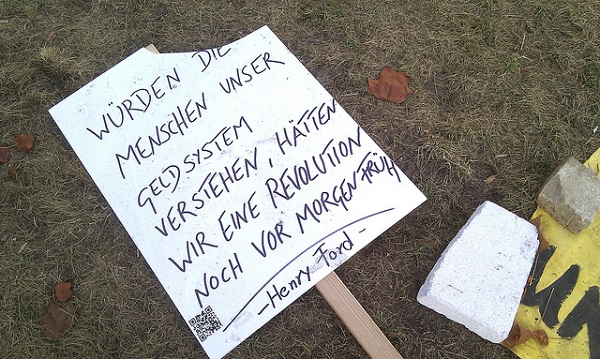 WÜRDEN DIE
MENSCHEN UNSER
GELDSYSTEM
VERSTEHEN, HÄTTEN
WIR EINE REVOLUTION
NOCH VOR MORGEN FRÜH
- Henry Ford -